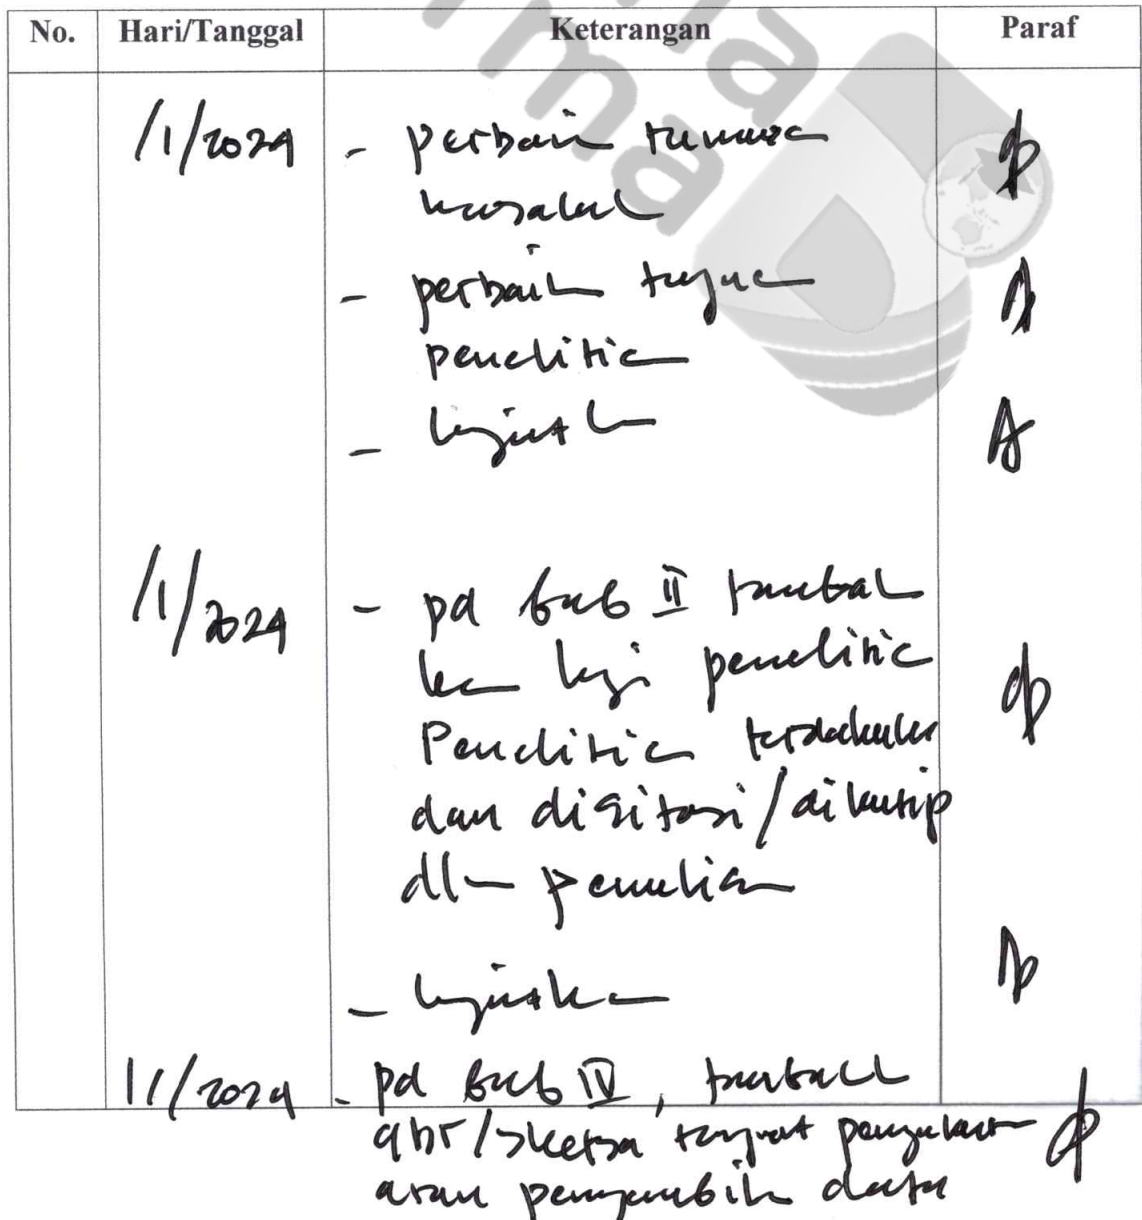 No. Hari/Tanggal Keterangan Paraf
/1/2024 - perbaiki rumusan
masalah
- perbaiki tujuan
penelitian
- lanjutkan
/1/2024 - pd bab II tambah
kan lagi penelitian
Penelitian terdahulu
dan disitasi/dikutip
dlm penulisan
- lanjutkan
/1/2024 - pd bab IV, tambahkan
gbr/sketsa tempat pengukuran
atau pengambilan data